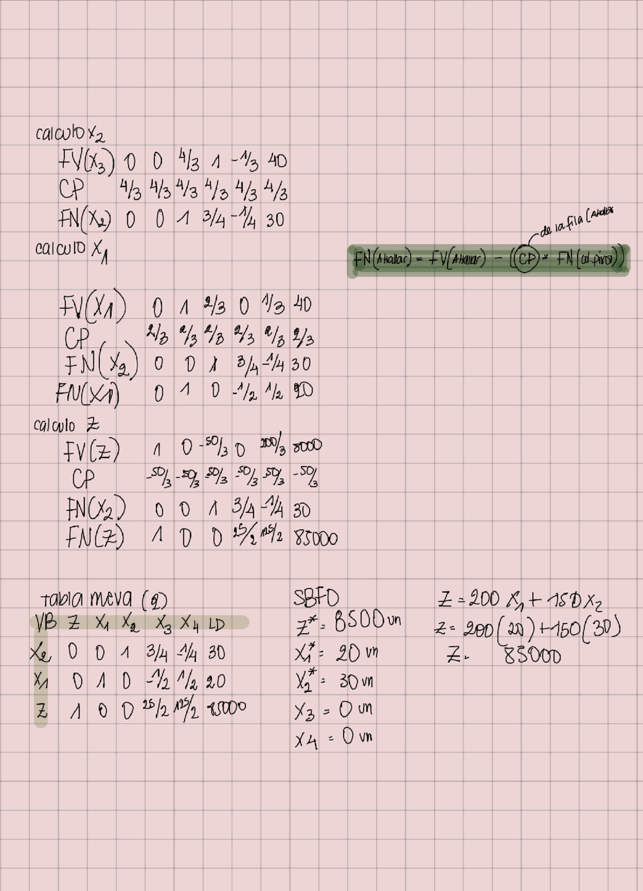 calculo x₂
FV(x₃) 0 0 4/3 1 -1/3 40
CP 4/3 4/3 4/3 4/3 4/3 4/3
FN(x₂) 0 0 1 3/4 -1/4 30
calculo x₁
de la fila (Ahallar
FN(Ahallar) = FV(Ahallar) - ((CP) * FN(col.pivot))
FV(x1) 0 1 2/3 0 1/3 40
CP 2/3 2/3 2/3 2/3 2/3 2/3
FN(x₂) 0 0 1 3/4 -1/4 30
FN(x1) 0 1 0 -1/2 1/2 20
calculo Z
FV(Z) 1 0 -50/3 0 200/3 8000
CP -50/3 -50/3 -50/3 -50/3 -50/3 -50/3
FN(x₂) 0 0 1 3/4 -1/4 30
FN(Z) 1 0 0 25/2 125/2 85000
Tabla meva (2)
VB Z X₁ X₂ X₃ X₄ LD
X₂ 0 0 1 3/4 -1/4 30
X₁ 0 1 0 -1/2 1/2 20
Z 1 0 0 25/2 125/2 85000
SBFO
Z* = 8500 un
X₁* = 20 un
X₂* = 30 un
X₃ = 0 un
X4 = 0 un
Z = 200 X₁ + 150 X₂
Z = 200(20) + 150(30)
Z = 85000